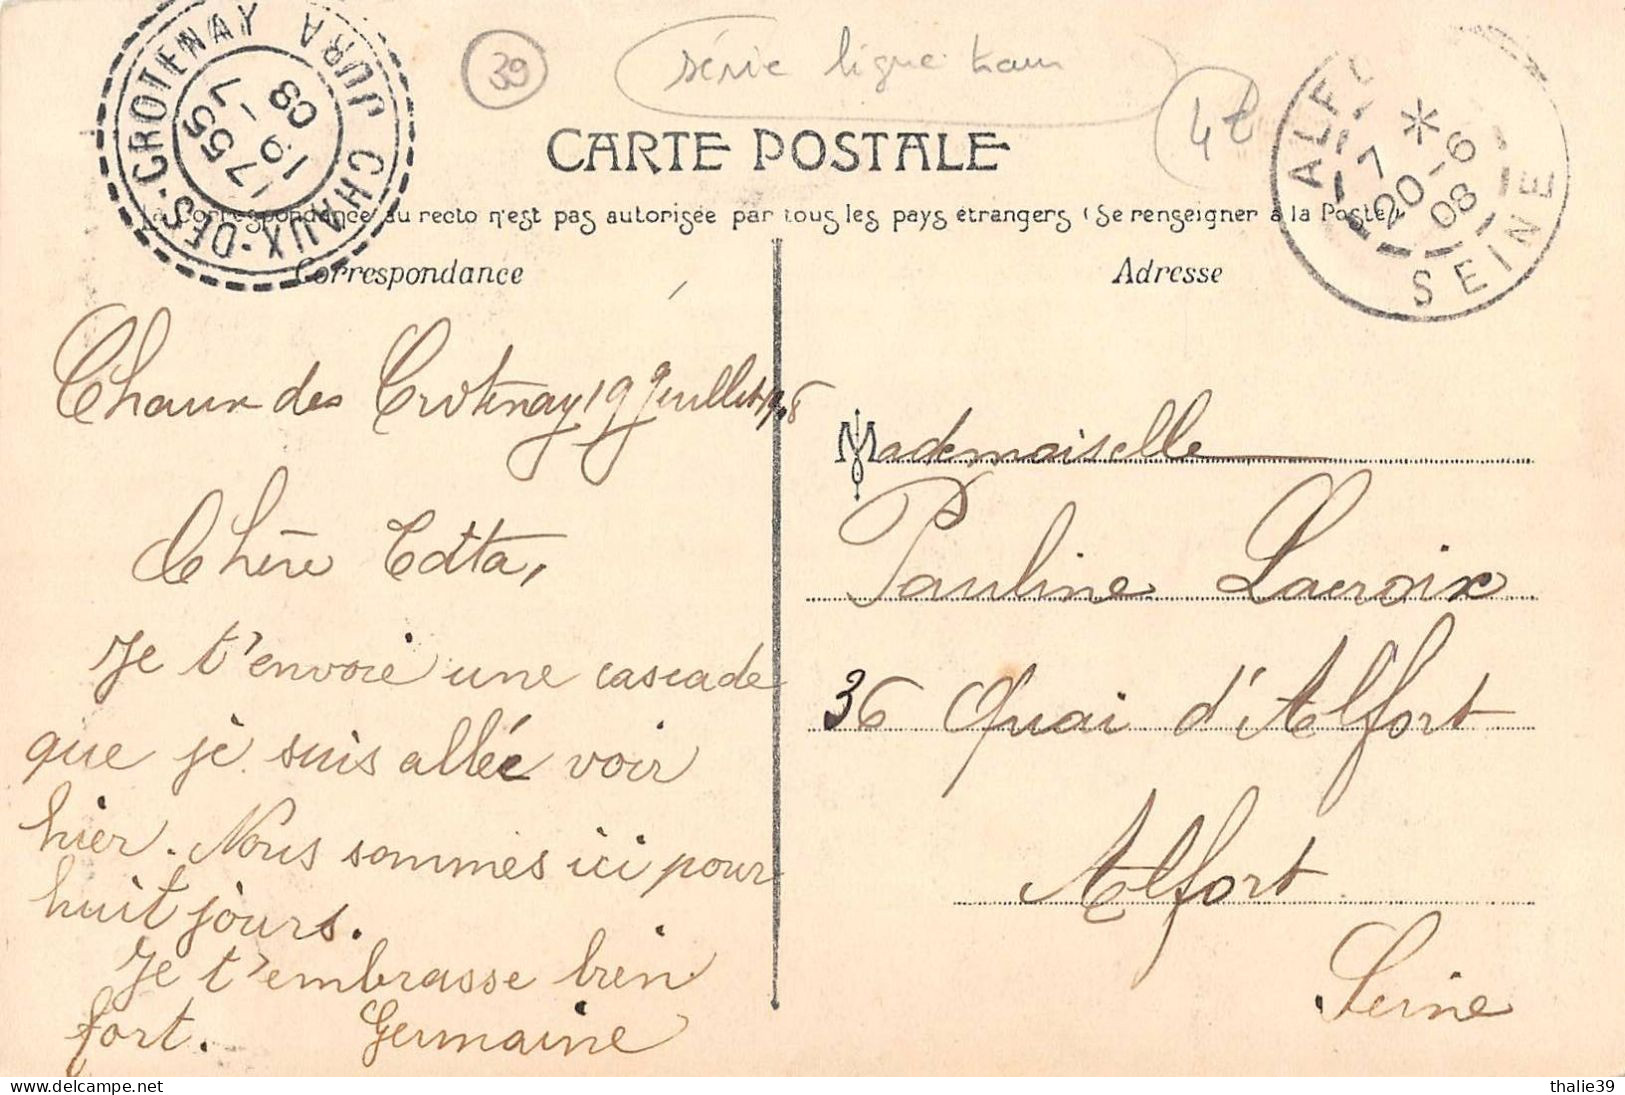 39
série ligne tram
4€
CHAUX-DES-CROTENAY JURA
17 55
19 - 7
08
ALFO SEINE
7 *
20 - 6
08
CARTE POSTALE
La Correspondance au recto n'est pas autorisée par tous les pays étrangers (Se renseigner à la Poste)
Correspondance
Adresse
Chaux des Crotenay 19 Juillet 1908
Chère Tata,
Je t'envoie une cascade
que je suis allée voir
hier. Nous sommes ici pour
huit jours.
Je t'embrasse bien
fort. Germaine
Mademoiselle
Pauline Lacroix
36 Quai d'Alfort
Alfort
Seine
thalie39